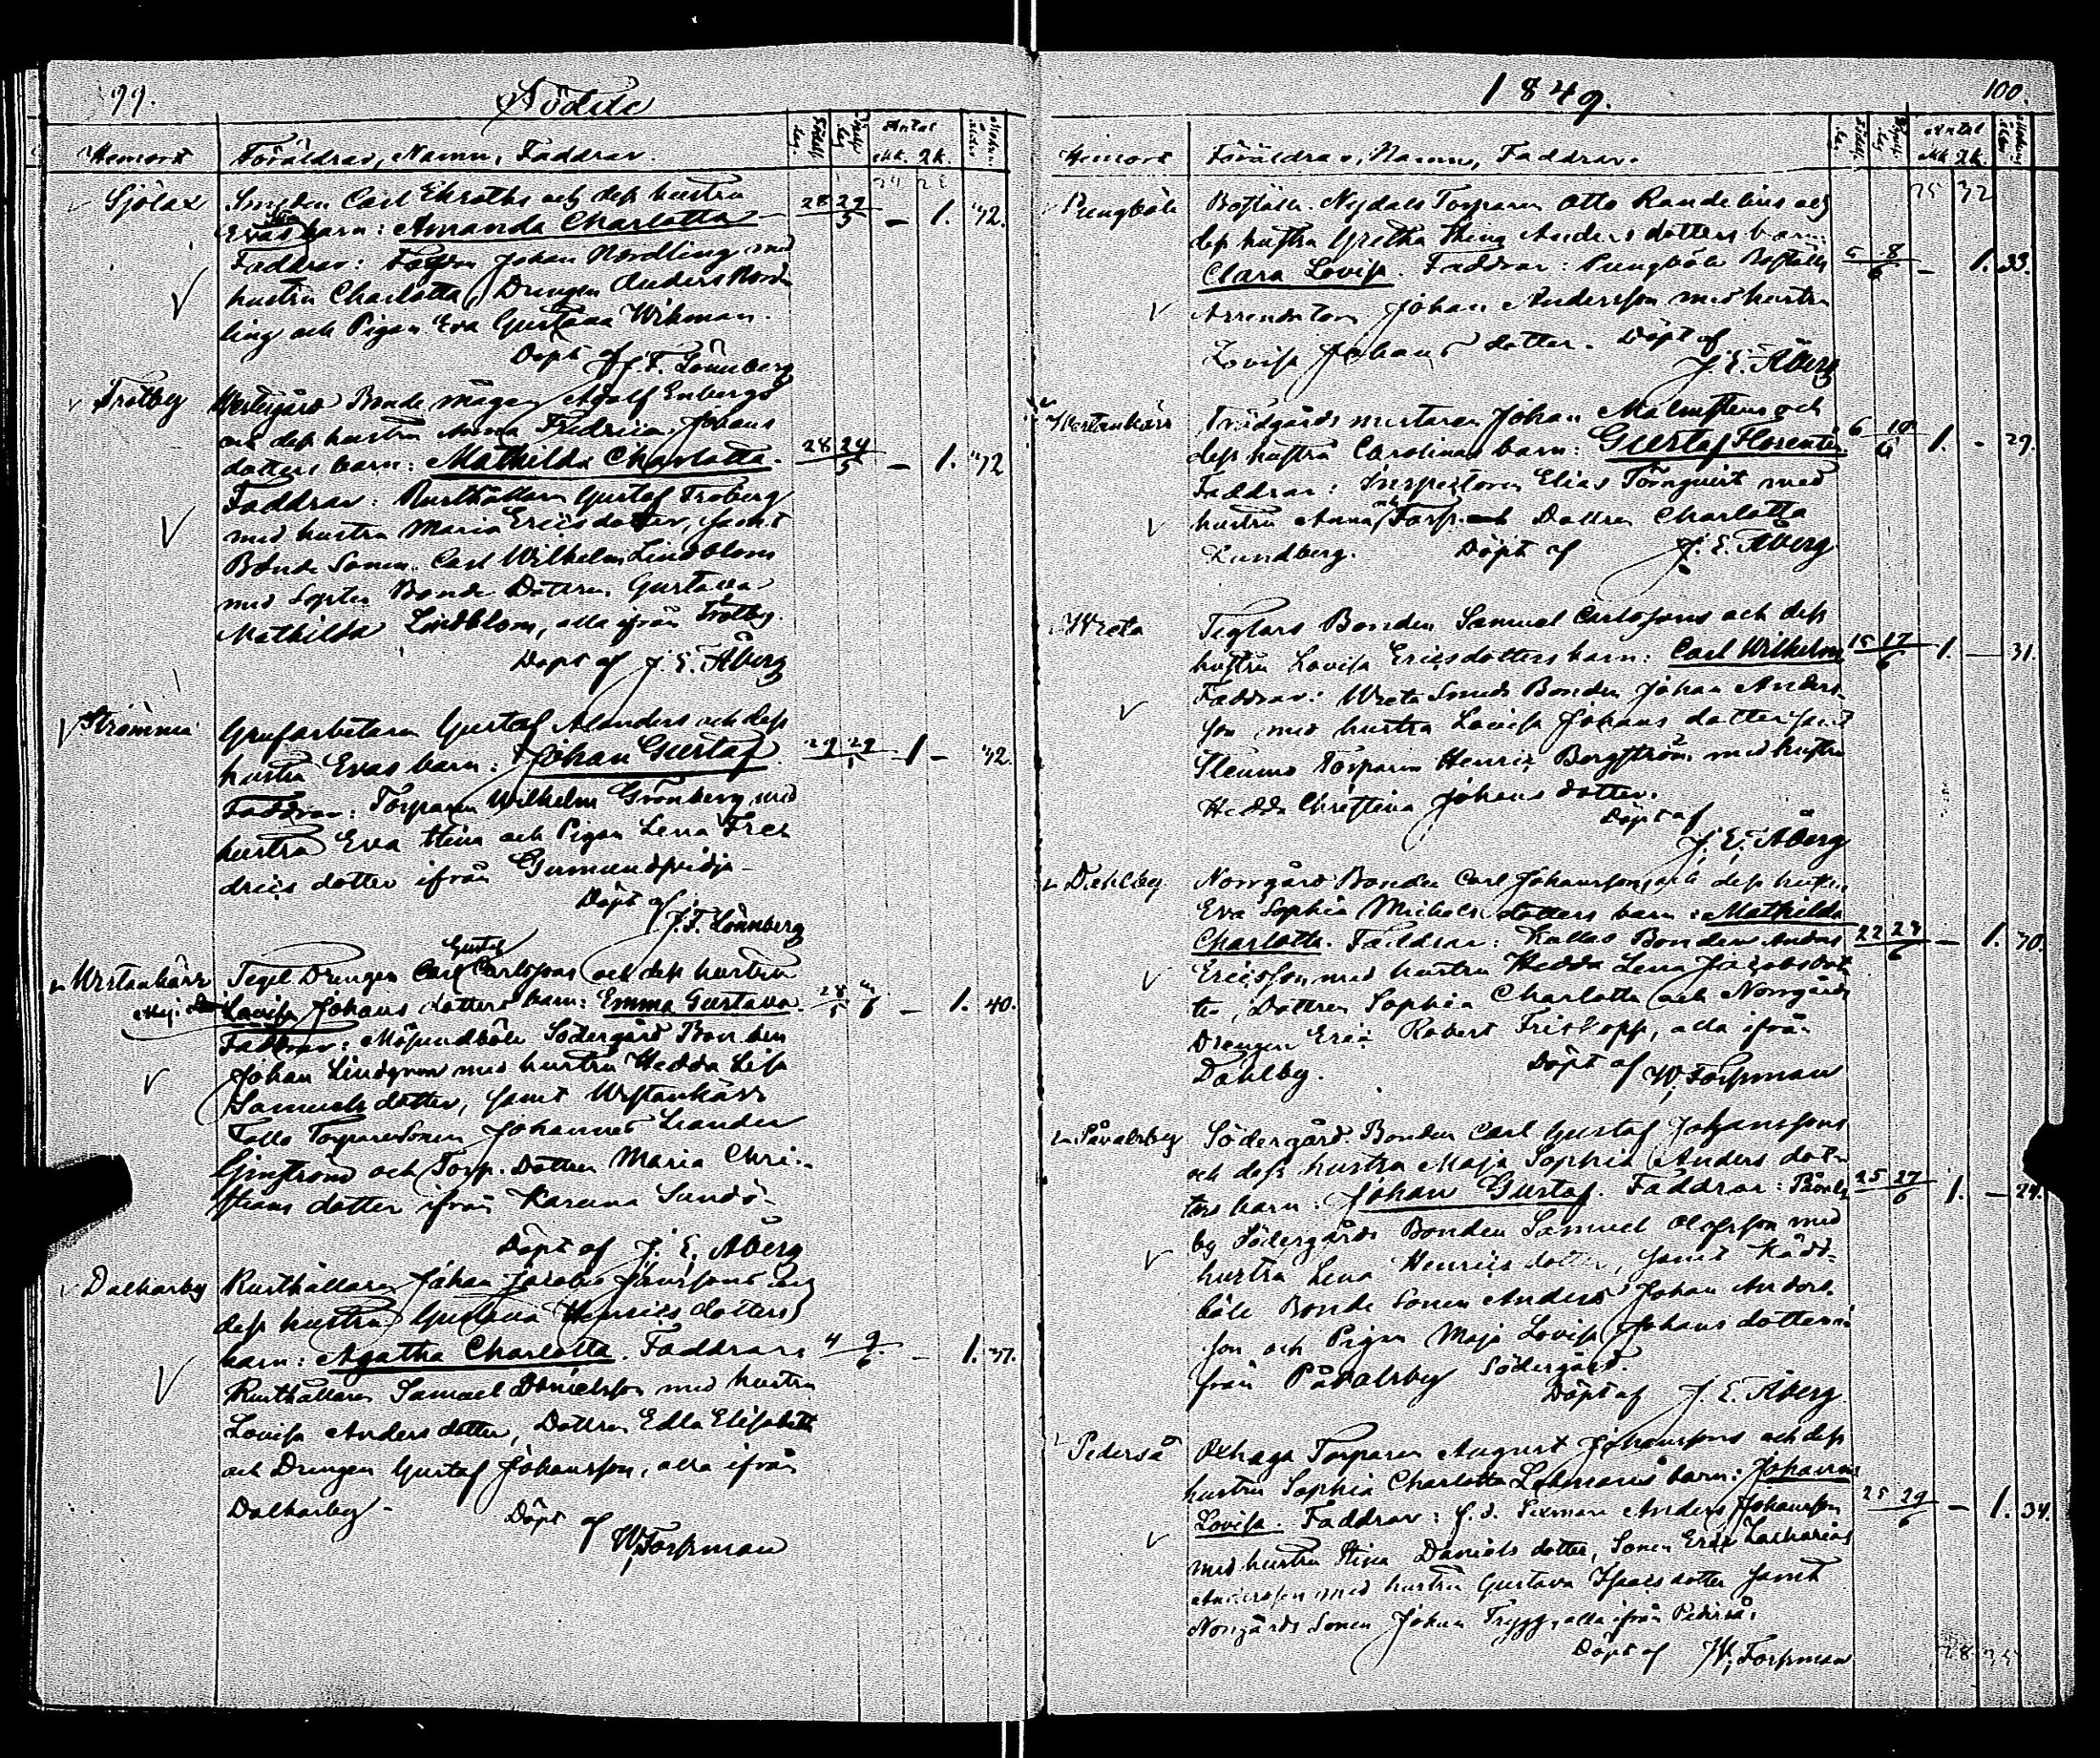 99.
Födde
Hemort Föräldrar, Namn, Faddrar. Födelse dag. Döpelse dag. Antal Mk. Qk. Modrens ålder
Sjölax Smeden Carl Ehroths och dess hustru
Evas barn: Amanda Charlotta 28 29/5 – 1. 42.
Faddrar: Johan Nordling med
hustru Charlotta, Drengen Anders Nord
ling och Pigan Eva Gustava Wikman.
Döpt af J. F. Lönnberg
Trotby Westergård Bonde mågen Adolf Enbergs
och dess hustru Anna Fredrica Johans
dotters barn: Mathilda Charlotta. 28 29/5 – 1. 42
Faddrar: Rusthållaren Gustaf Troberg
med hustru Maria Ericsdotter, samt
Bonde Sonen Carl Wilhelm Lindblom
med Bonde Dottren Gustava
Mathilda Lindblom, alla ifrån Trotby.
Döpt af J. E. Åberg
Strömma Grufarbetaren Gustaf Alanders och dess
hustru Evas barn: Johan Gustaf. 29 29/5 1 – 42.
Faddrar: Torparen Wilhelm Grönberg med
hustru Eva Stina och Pigan Lena Fred
drics dotter ifrån Germundsvidja
Döpt af
J. F. Lönnberg
Gustaf
Westankärr Tegel Drengen Carl Carlssons och dess hustru
Lovisa Johans dotters barn: Emma Gustava. 28/5 6 – 1. 40.
Faddrar: Mösundböle Södergård Bonden
Johan Lindgren med hustru Hedda Lisa
Samuels dotter, samt Westankärr
Torparesonen Johannes Leander
och Torp. Dottren Maria Chri-
stians dotter ifrån Karuna Sundö
Döpt af J. E. Åberg
Dalkarby Rusthållaren Johan Jacob Jönssons och
dess hustru Gustava Henrics dotters
barn: Agatha Charlotta. Faddrar: 4 9/6 – 1. 37.
Rusthållaren Samuel Danielsson med hustru
Lovisa Anders dotter, Dottren Edla Elisabeth
och Drengen Gustaf Johansson, alla ifrån
Dalkarby
Döpt af
W. Forsman
1849.
100.
Hemort Föräldrar, Namn, Faddrar. Födelse dag. Döpelse dag. Antal Mk. Qk. Modrens ålder
25 32
Pungböle Boställe Nydals Torparen Otto Randelins och
dess hustru Gretha Stina Anders dotters barn:
Clara Lovisa. Faddrar: Pungböle Boställe 6 8/6 – 1. 33.
Arrendatorn Johan Andersson med hustru
Lovisa Johans dotter. Döpt af
J. E. Åberg
Westankärr Trädgårds mästaren Johan Malmstens och
dess hustru Carolinas barn: Gustaf Florentin. 6 10/6 1. – 29.
Faddrar: Inspectoren Elias Törnqvist med
hustru Anna, Torp. Dottren Charlotta
Lundberg. Döpt af J. E. Åberg
Wreta Teglars Bonden Samuel Carlssons och dess
hustru Lovisa Ericsdotters barn: Carl Wilhelm 15 17/6 1. – 31.
Faddrar: Wreta Smeds Bonden Johan Anders-
son med hustru Lovisa Johans dotter samt
Torparen Henric Bergström med hustru
Hedda Christina Johans dotter.
Döpt af
J. E. Åberg
Dahlby Norrgård Bonden Carl Johanssons och dess hustru
Eva Sophia Michels dotters barn: Mathilda
Charlotta. Faddrar: Kallas Bonden Anders 22 24/6 – 1. 30.
Ericsson, med hustru Hedda Lena Jacobsdot
ter, Dottren Sophia Charlotta och Norrgårds
Drengen Eric Robert Friskopp, alla ifrån
Dahlby. Döpt af W. Forsman
Påvalsby Södergård Bonden Carl Gustaf Johanssons
och dess hustru Maja Sophia Anders dot-
ters barn: Johan Gustaf. Faddrar: Påvals 25 27/6 1. – 24.
by Södergårds Bonden Samuel Olofsson med
hustru Lena Henrics dotter, samt Rådd-
böle Bonde Sonen Anders Johan Anders-
son och Pigan Maja Lovisa Johans dotter i-
från Påvalsby Södergård.
Döpt af J. E. Åberg.
Pederså Oxhaga Torparen August Johanssons och dess
hustru Sophia Charlotta Lehmans barn: Johanna
Lovisa. Faddrar: f. d. Sexman Anders Johansson 25 29/6 – 1. 34.
med hustru Stina Daniels dotter, Sonen Eric Zacharias
Andersson med hustru Gustava Isacs dotter samt
Norrgårds Sonen Johan Trygg, alla ifrån Pederså.
Döpt af W. Forsman
28 35